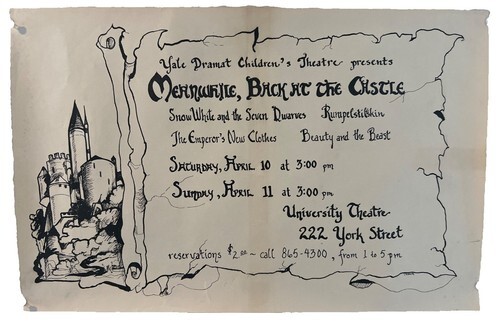 Yale Dramat Children's Theatre presents
Meanwhile, Back at the Castle
Snow White and the Seven Dwarves Rumpelstiltskin
The Emperor's New Clothes Beauty and the Beast
Saturday, April 10 at 3:00 pm
Sunday, April 11 at 3:00 pm
University Theatre
222 York Street
reservations $2.00 - call 865-4300, from 1 to 5 pm